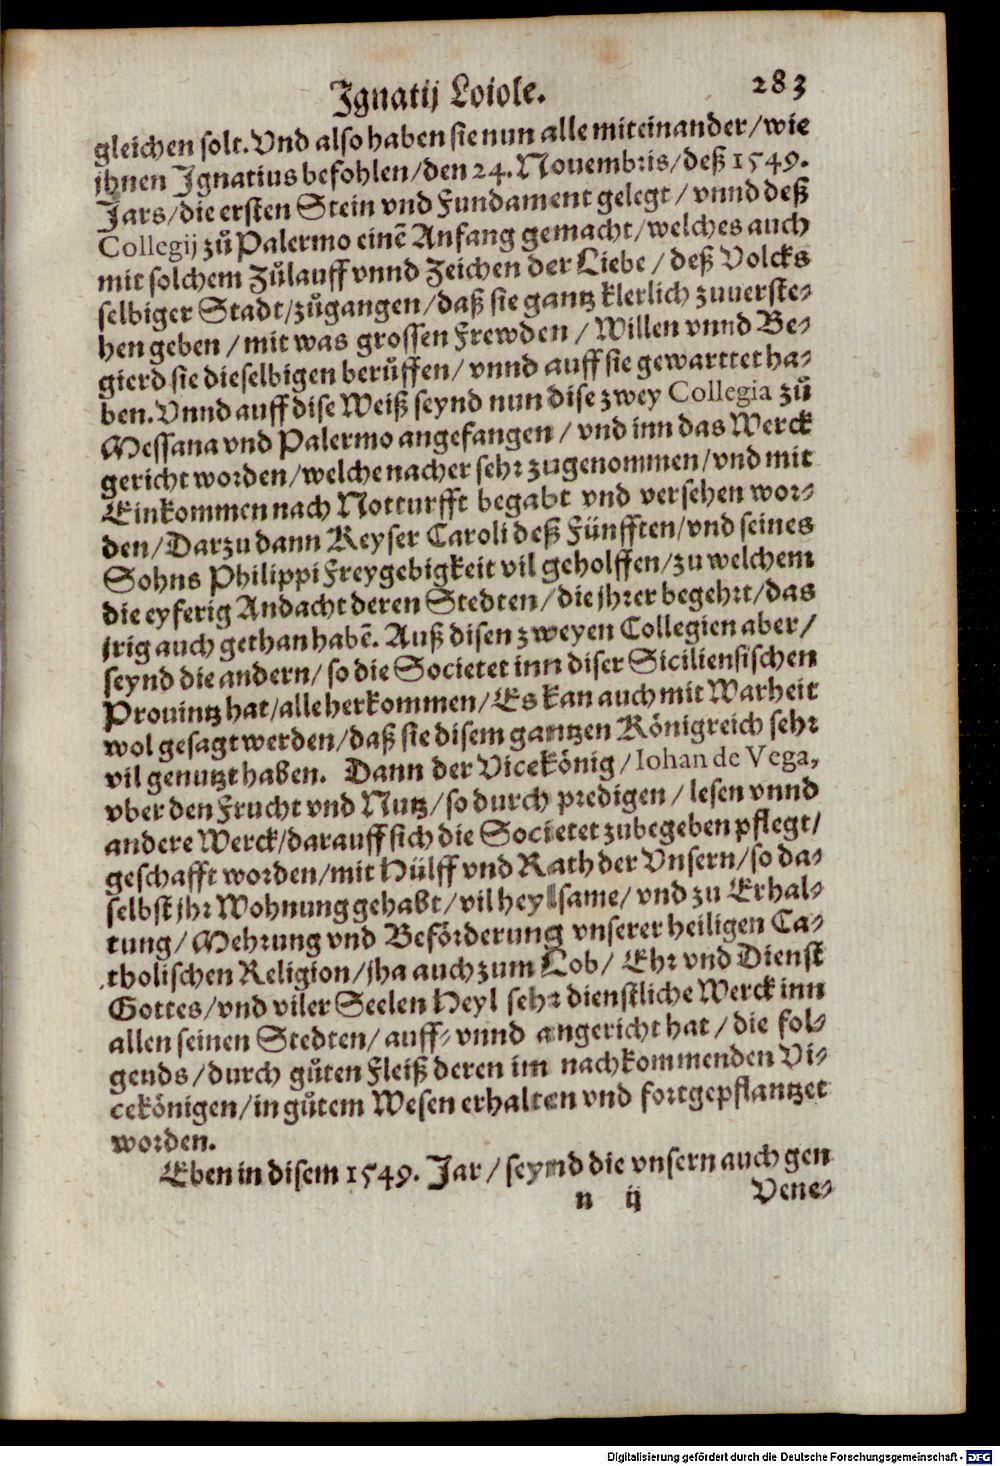 Ignatij Loiole. 283
gleichen solt. Vnd also haben sie nun alle miteinander/wie
jhnen Ignatius befohlen/den 24. Nouembris/deß 1549.
Jars/die ersten Stein vnd Fundament gelegt/vnnd deß
Collegij zů Palermo einẽ Anfang gemacht/welches auch
mit solchem Zůlauff vnnd Zeichen der Liebe/deß Volcks
selbiger Stadt/zůgangen/daß sie gantz klerlich zuuerste-
hen geben/mit was grossen Frewden/Willen vnnd Be-
gierd sie dieselbigen berůffen/vnnd auff sie gewarttet ha-
ben. Vnnd auff dise Weiß seynd nun dise zwey Collegia zů
Messana vnd Palermo angefangen/vnd inn das Werck
gericht worden/welche nacher sehr zugenommen/vnd mit
Einkommen nach Notturfft begabt vnd versehen wor-
den/Darzu dann Keyser Caroli deß Fünfften/vnd seines
Sohns Philippi Freygebigkeit vil geholffen/zu welchem
die eyferig Andacht deren Stedten/die jhrer begehrt/das
jrig auch gethan habẽ. Auß disen zweyen Collegien aber/
seynd die andern/so die Societet inn diser Siciliensischen
Prouintz hat/alle herkommen/Es kan auch mit Warheit
wol gesagt werden/daß sie disem gantzen Königreich sehr
vil genutzt haben. Dann der Vicekönig/Iohan de Vega,
vber den Frucht vnd Nutz/so durch predigen/lesen vnnd
andere Werck/darauff sich die Societet zubegeben pflegt/
geschafft worden/mit Hülff vnd Rath der Vnsern/so da-
selbst jhr Wohnung gehabt/vil heylsame/vnd zu Erhal-
tung/Mehrung vnd Beförderung vnserer heiligen Ca-
tholischen Religion/jha auch zum Lob/Ehr vnd Dienst
Gottes/vnd viler Seelen Heyl sehr dienstliche Werck inn
allen seinen Stedten/auff- vnnd angericht hat/die fol-
gends/durch gůten Fleiß deren im nachkommenden Vi-
cekönigen/in gůtem Wesen erhalten vnd fortgepflantzet
worden.
Eben in disem 1549. Jar/seynd die vnsern auch gen
n ij Vene-
Digitalisierung gefördert durch die Deutsche Forschungsgemeinschaft - DFG